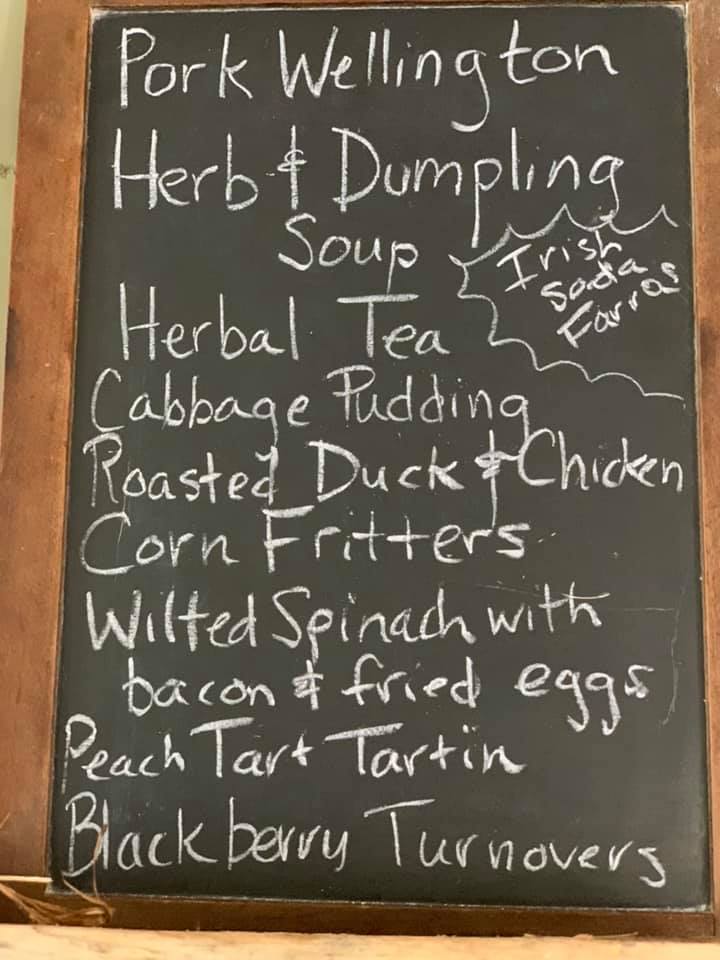 Pork Wellington
Herb & Dumpling
Soup
Irish
Soda
Farros
Herbal Tea
Cabbage Pudding
Roasted Duck & Chicken
Corn Fritters
Wilted Spinach with
bacon & fried eggs
Peach Tart Tartin
Blackberry Turnovers